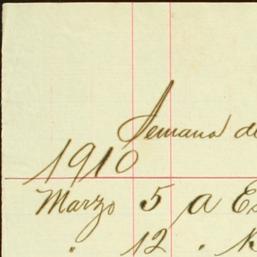 Semana de
1910
Marzo 5 a E
" 12 "